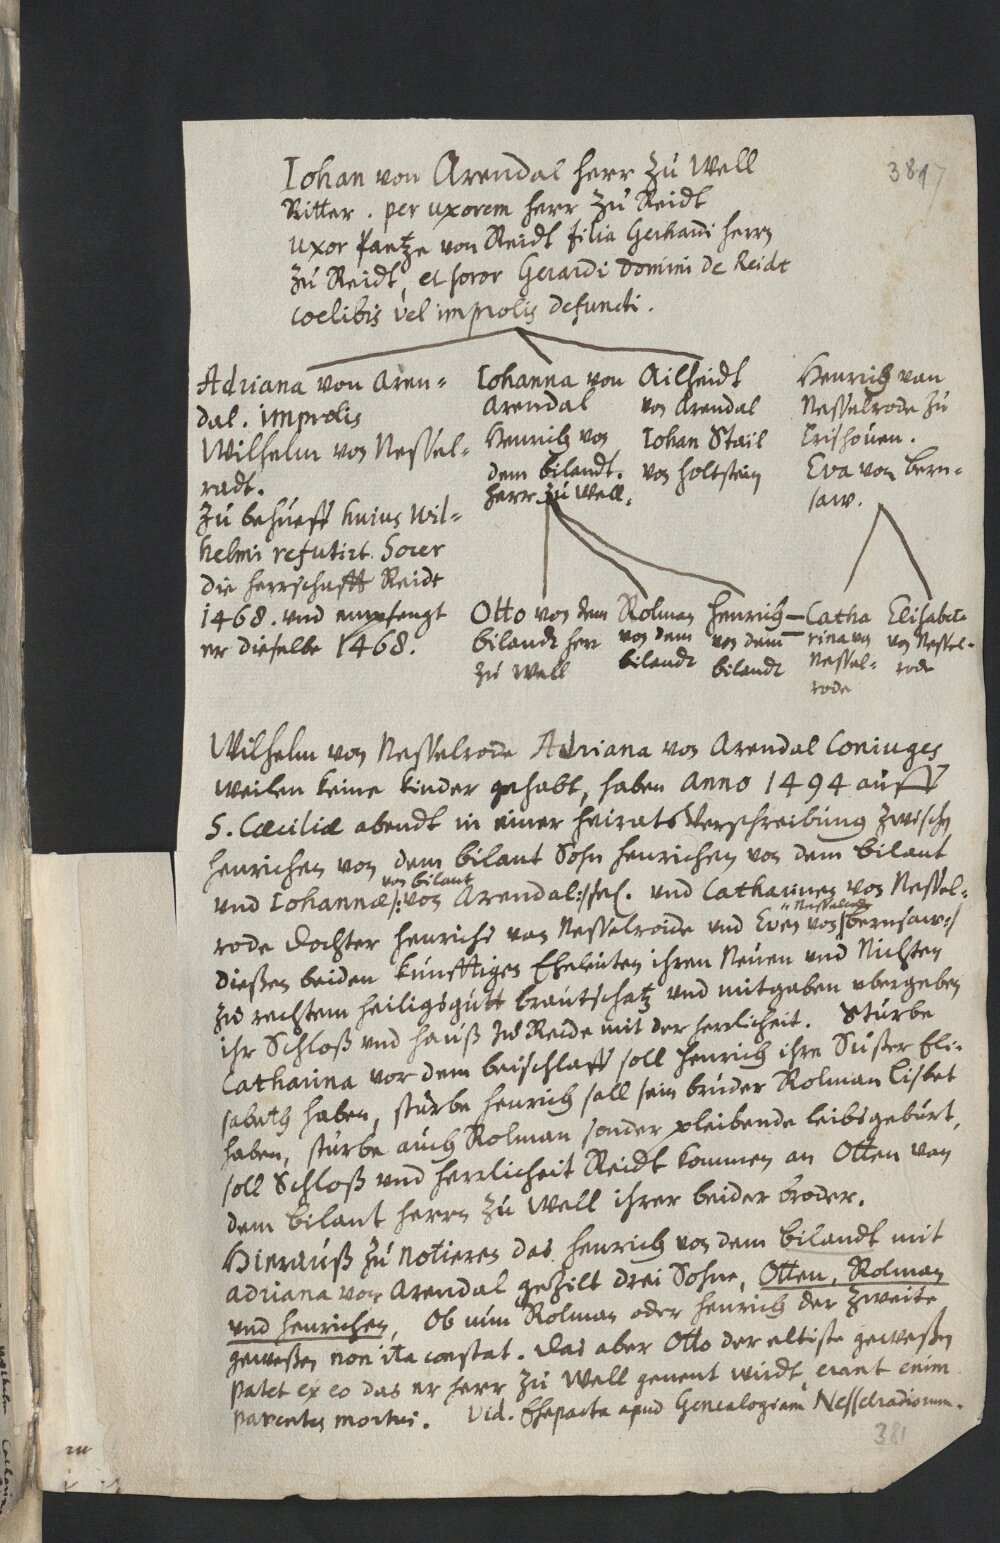 3817
Iohan von Arendal herr zu Well
Ritter. per uxorem herr zu Reidt
uxor Fantze von Reidt filia Gerhardi herrn
zu Reidt, et soror Gerardi domini de Reidt
coelibis vel improlis defuncti.
Adriana von Aren=
dal. improlis
Wilhelm von Nessel=
radt.
Zu behueff huius Wil=
helmi refutirt Socer
die herrschafft Reidt
1468. und empfengt
er dieselbe 1468.
Iohanna von
Arendal
Henrich von
dem bilandt.
herr zu Well.
Ailheidt
von Arendal
Iohan Stail
von holtstein
Henrich van
Nesselrode zu
Crishouen.
Eva von bern=
saw.
Otto von dem
bilandt herr
zu Well
Rolman
von dem
bilandt
henrich
von dem
bilandt
Catha
rina von
Nessel=
rode
Elisabet
von Nessel=
rode
Wilhelm von Nesselrode Adriana von Arendal Coniuges
weilen keine kinder gehabt, haben anno 1494 auff
S. Cæciliæ abendt in einer heirats Verschreibung zwischen
henrichen von dem bilant Sohn henrichen von dem bilant
von bilant
und Iohannæ /: von Arendal :/ sel. und Catharinen von Nessel=
Nesselrode
rode dochter henrichs van Nesselroide und Even von /: bernsaw :/
dießen beiden kunfftigen Eheleuten ihren Neuen und Nichten
zu rechtem heiligsgutt brautschatz und mitgaben ubergeben
ihr Schloß und hauß zu Reide mit der herlicheit. Sturbe
Catharina vor dem beischlaff soll henrich ihre Suster Eli=
sabeth haben, sturbe henrich soll sein bruder Rolman Lisbet
haben, sturbe auch Rolman sonder pleibende leibsgeburt,
soll Schloß und herrlicheit Reidt kommen an Otten van
dem bilant herrn zu Well ihrer beider broder.
Hierauß zu notieren das henrich von dem bilandt mit
adriana von Arendal gezilt drei Sohne, Otten, Rolman
und henrichen, Ob nun Rolman oder henrich der zweite
geweßen non ita constat. das aber Otto der eltiste geweßen
patet ex eo das er herr zu Well genent wirdt, erant enim
parentes mortui. Vid. Ehepacta apud Genealogiam Nesselradiorum.
381